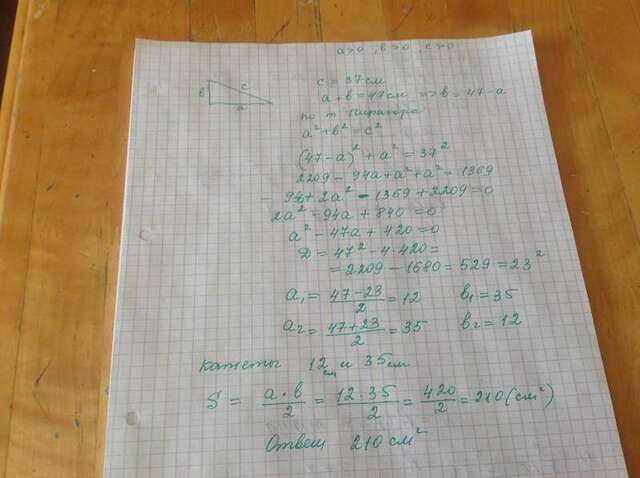 a>0, в>0, c>0
в c
a
c = 37см
a + в = 47см => в = 47-a
по т. Пифагора
a² + в² = c²
(47-a)² + a² = 37²
2209 - 94a + a² + a² = 1369
- 94a + 2a² - 1369 + 2209 = 0
2a² - 94a + 840 = 0
a² - 47a + 420 = 0
Д = 47² - 4·420 =
= 2209 - 1680 = 529 = 23²
a₁ = (47-23)/2 = 12 в₁ = 35
a₂ = (47+23)/2 = 35 в₂ = 12
катеты 12см и 35см
S = (a·в)/2 = (12·35)/2 = 420/2 = 210 (см²)
Ответ 210см²